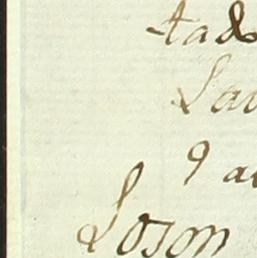 tad
La
9 a
Loson